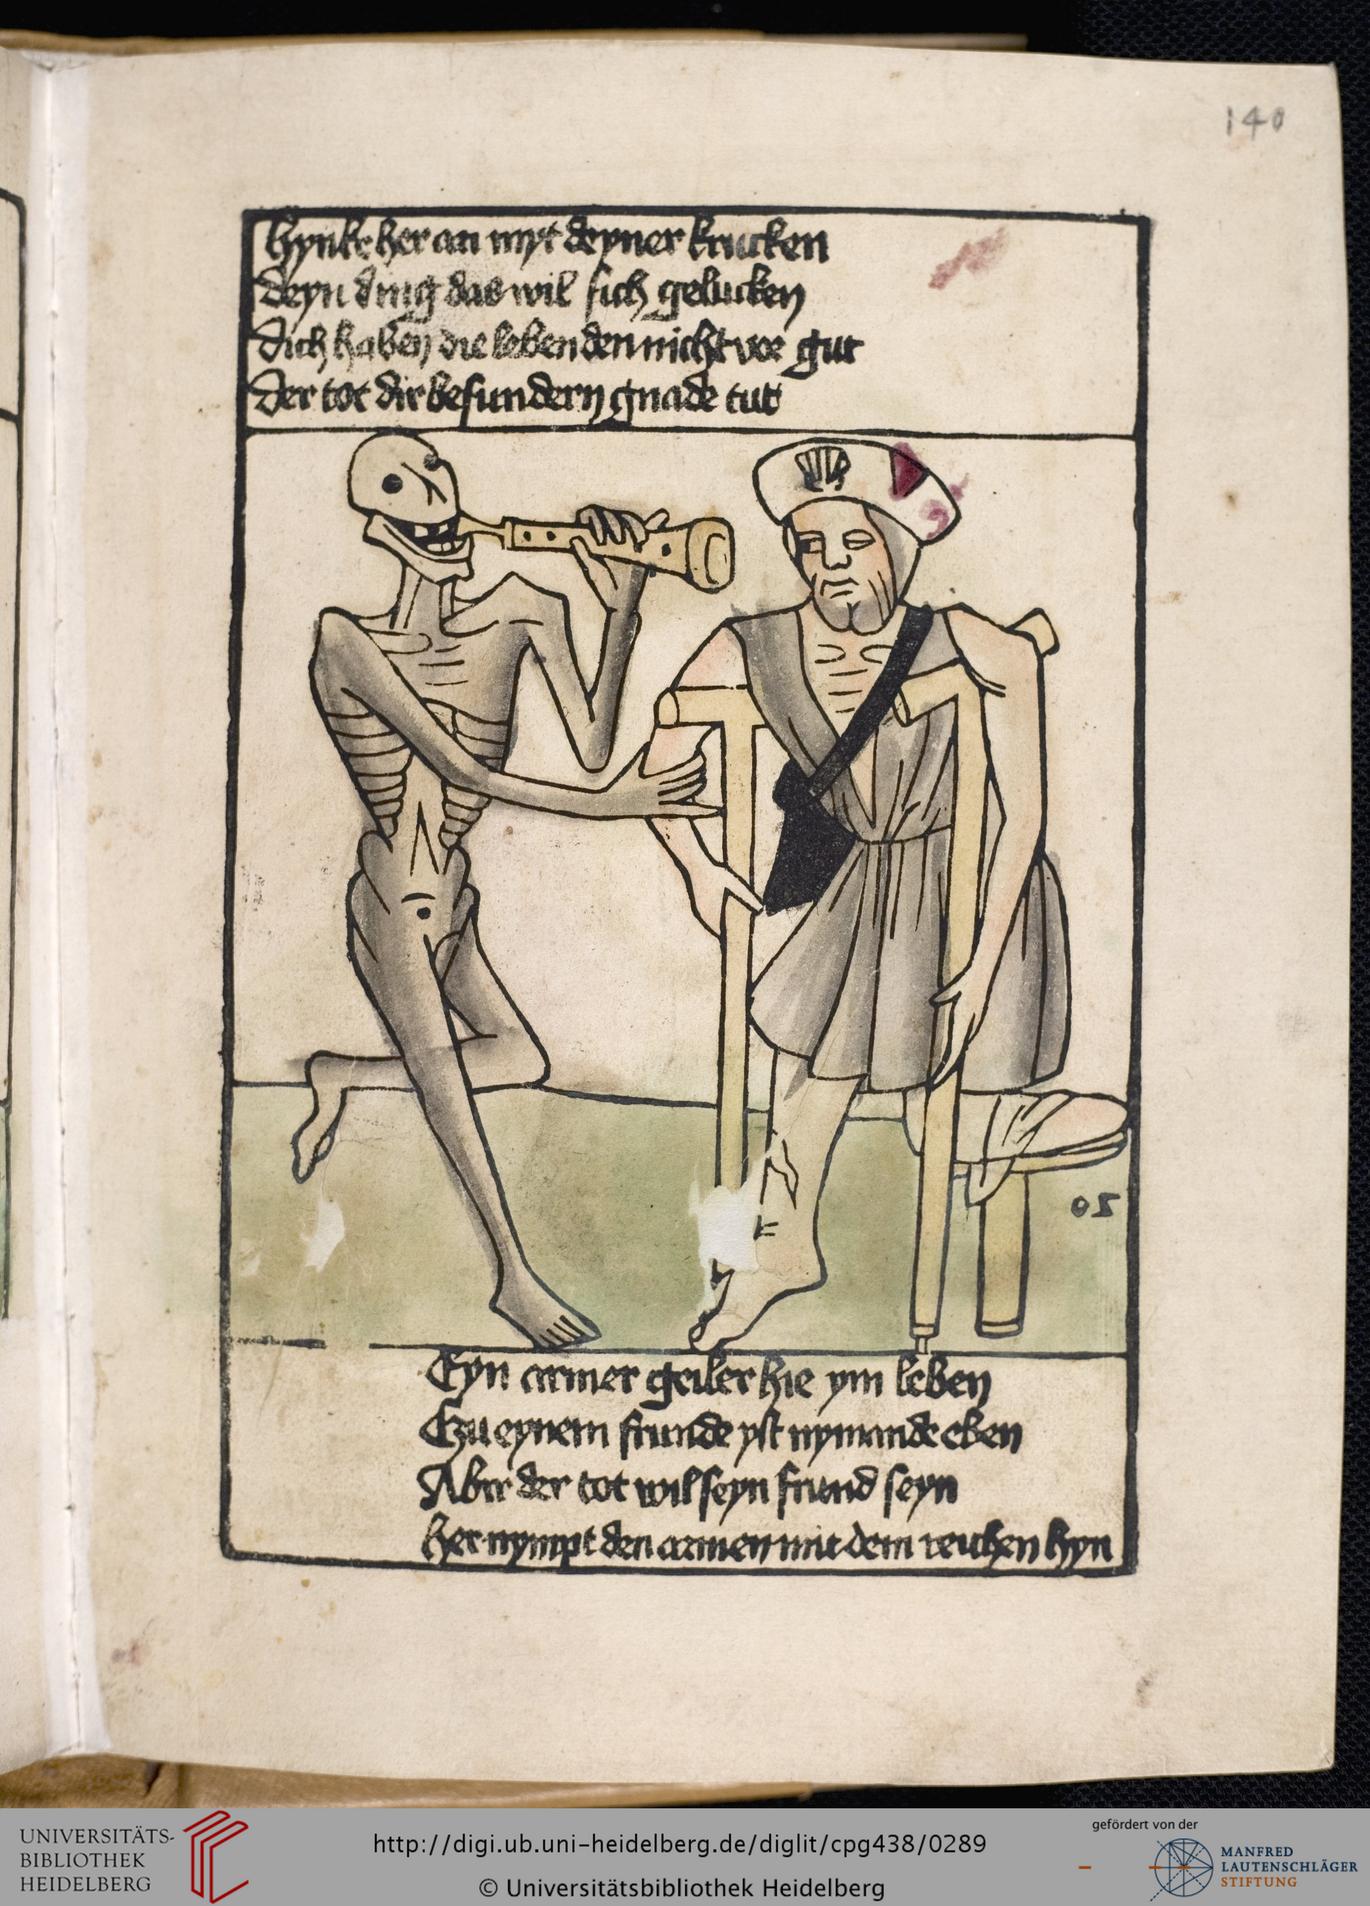 140
hynke her an myt deyner krucken
deyn ding das wil sich gelucken
dich haben die lebenden nicht vor gut
der tot dir besundern gnade tut
20
Eyn armer geiler hie ym leben
Czu eynem frunde yst nymande eben
Aber der tot wil seyn frund seyn
her nympt den armen mit dem reichen hyn
UNIVERSITÄTS-
BIBLIOTHEK
HEIDELBERG
http://digi.ub.uni-heidelberg.de/diglit/cpg438/0289
© Universitätsbibliothek Heidelberg
gefördert von der
MANFRED
LAUTENSCHLÄGER
STIFTUNG